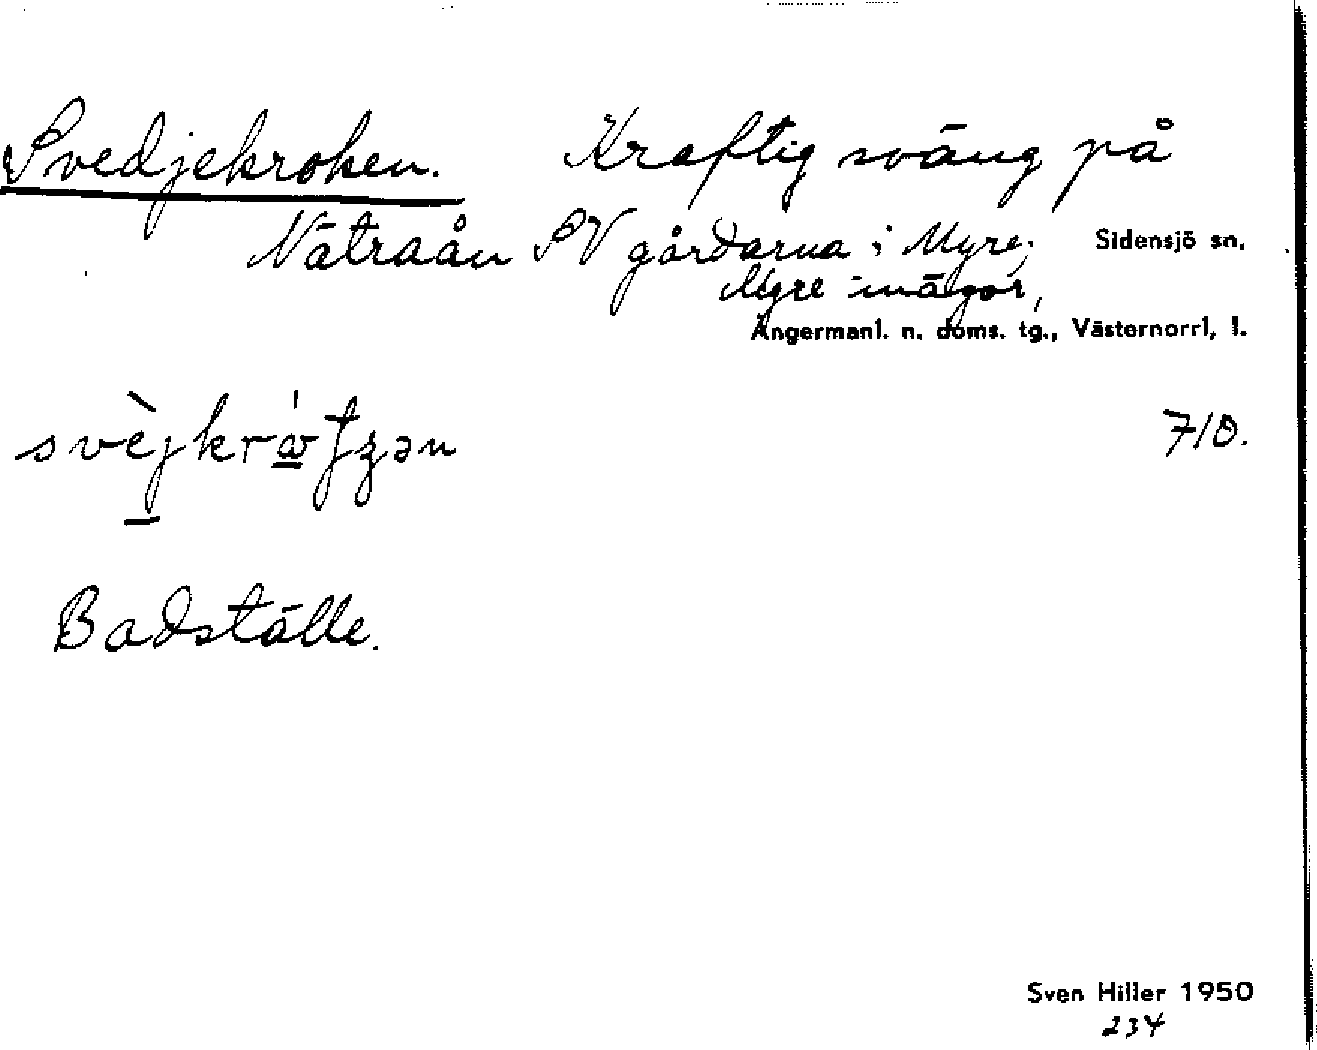 Svedjekroken. Kraftig sväng på
Nätraån SV gårdarna i Myre; Sidensjö sn.
Myre inägor,
Ångermanl. n. doms. tg., Västernorrl. l.
7/8.
Badställe.
Sven Hiller 1950
234